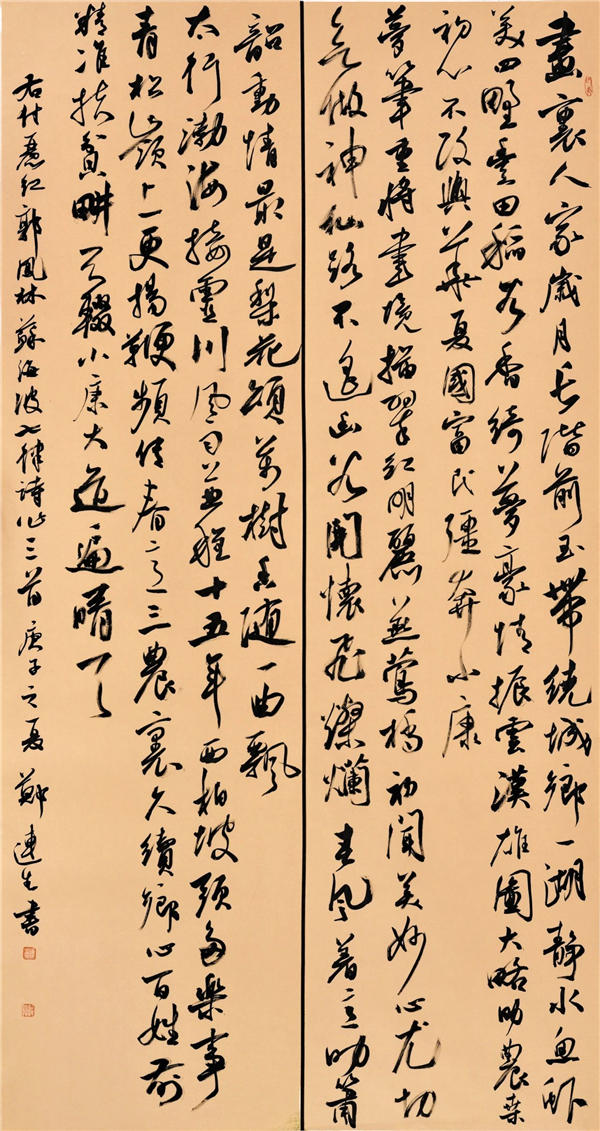 畫裏人家歲月長階前玉帶繞城鄉一湖靜水魚邨
美四野雲田稻谷香綺夢豪情振雲漢雄圖大略助農桑
初心不改興華夏國富民疆奔小康
夢筆重將畫境描翠紅明麗燕鶯橋初聞美妙心尤切
做神仙路不遙幽谷開懷飛燦爛春風着意助簫
韶動情最是梨花頌萬樹香隨一曲飄
太行渤海接靈川風雨兼程十五年西柏坡頭多樂事
青松嶺上更揚鞭頻傳春意三農裏久續鄉心百姓前
精准扶貧耕不輟小康大道遍晴天
右付紅郭鳳林蘇海波七律詩作三首庚子之夏鄭連生書